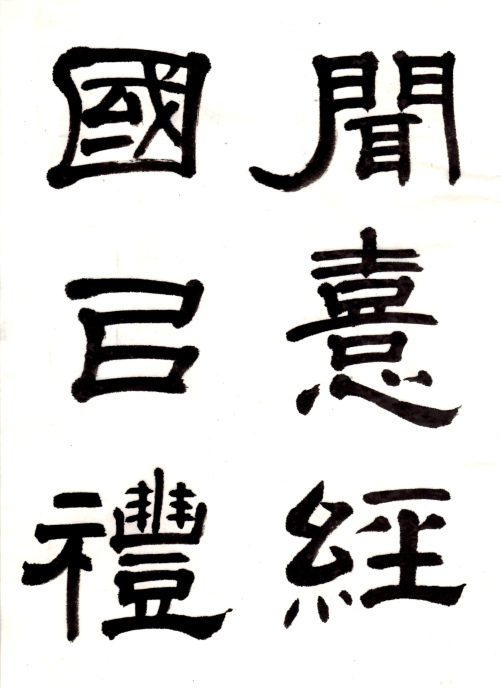 聞憙經
國㠯禮